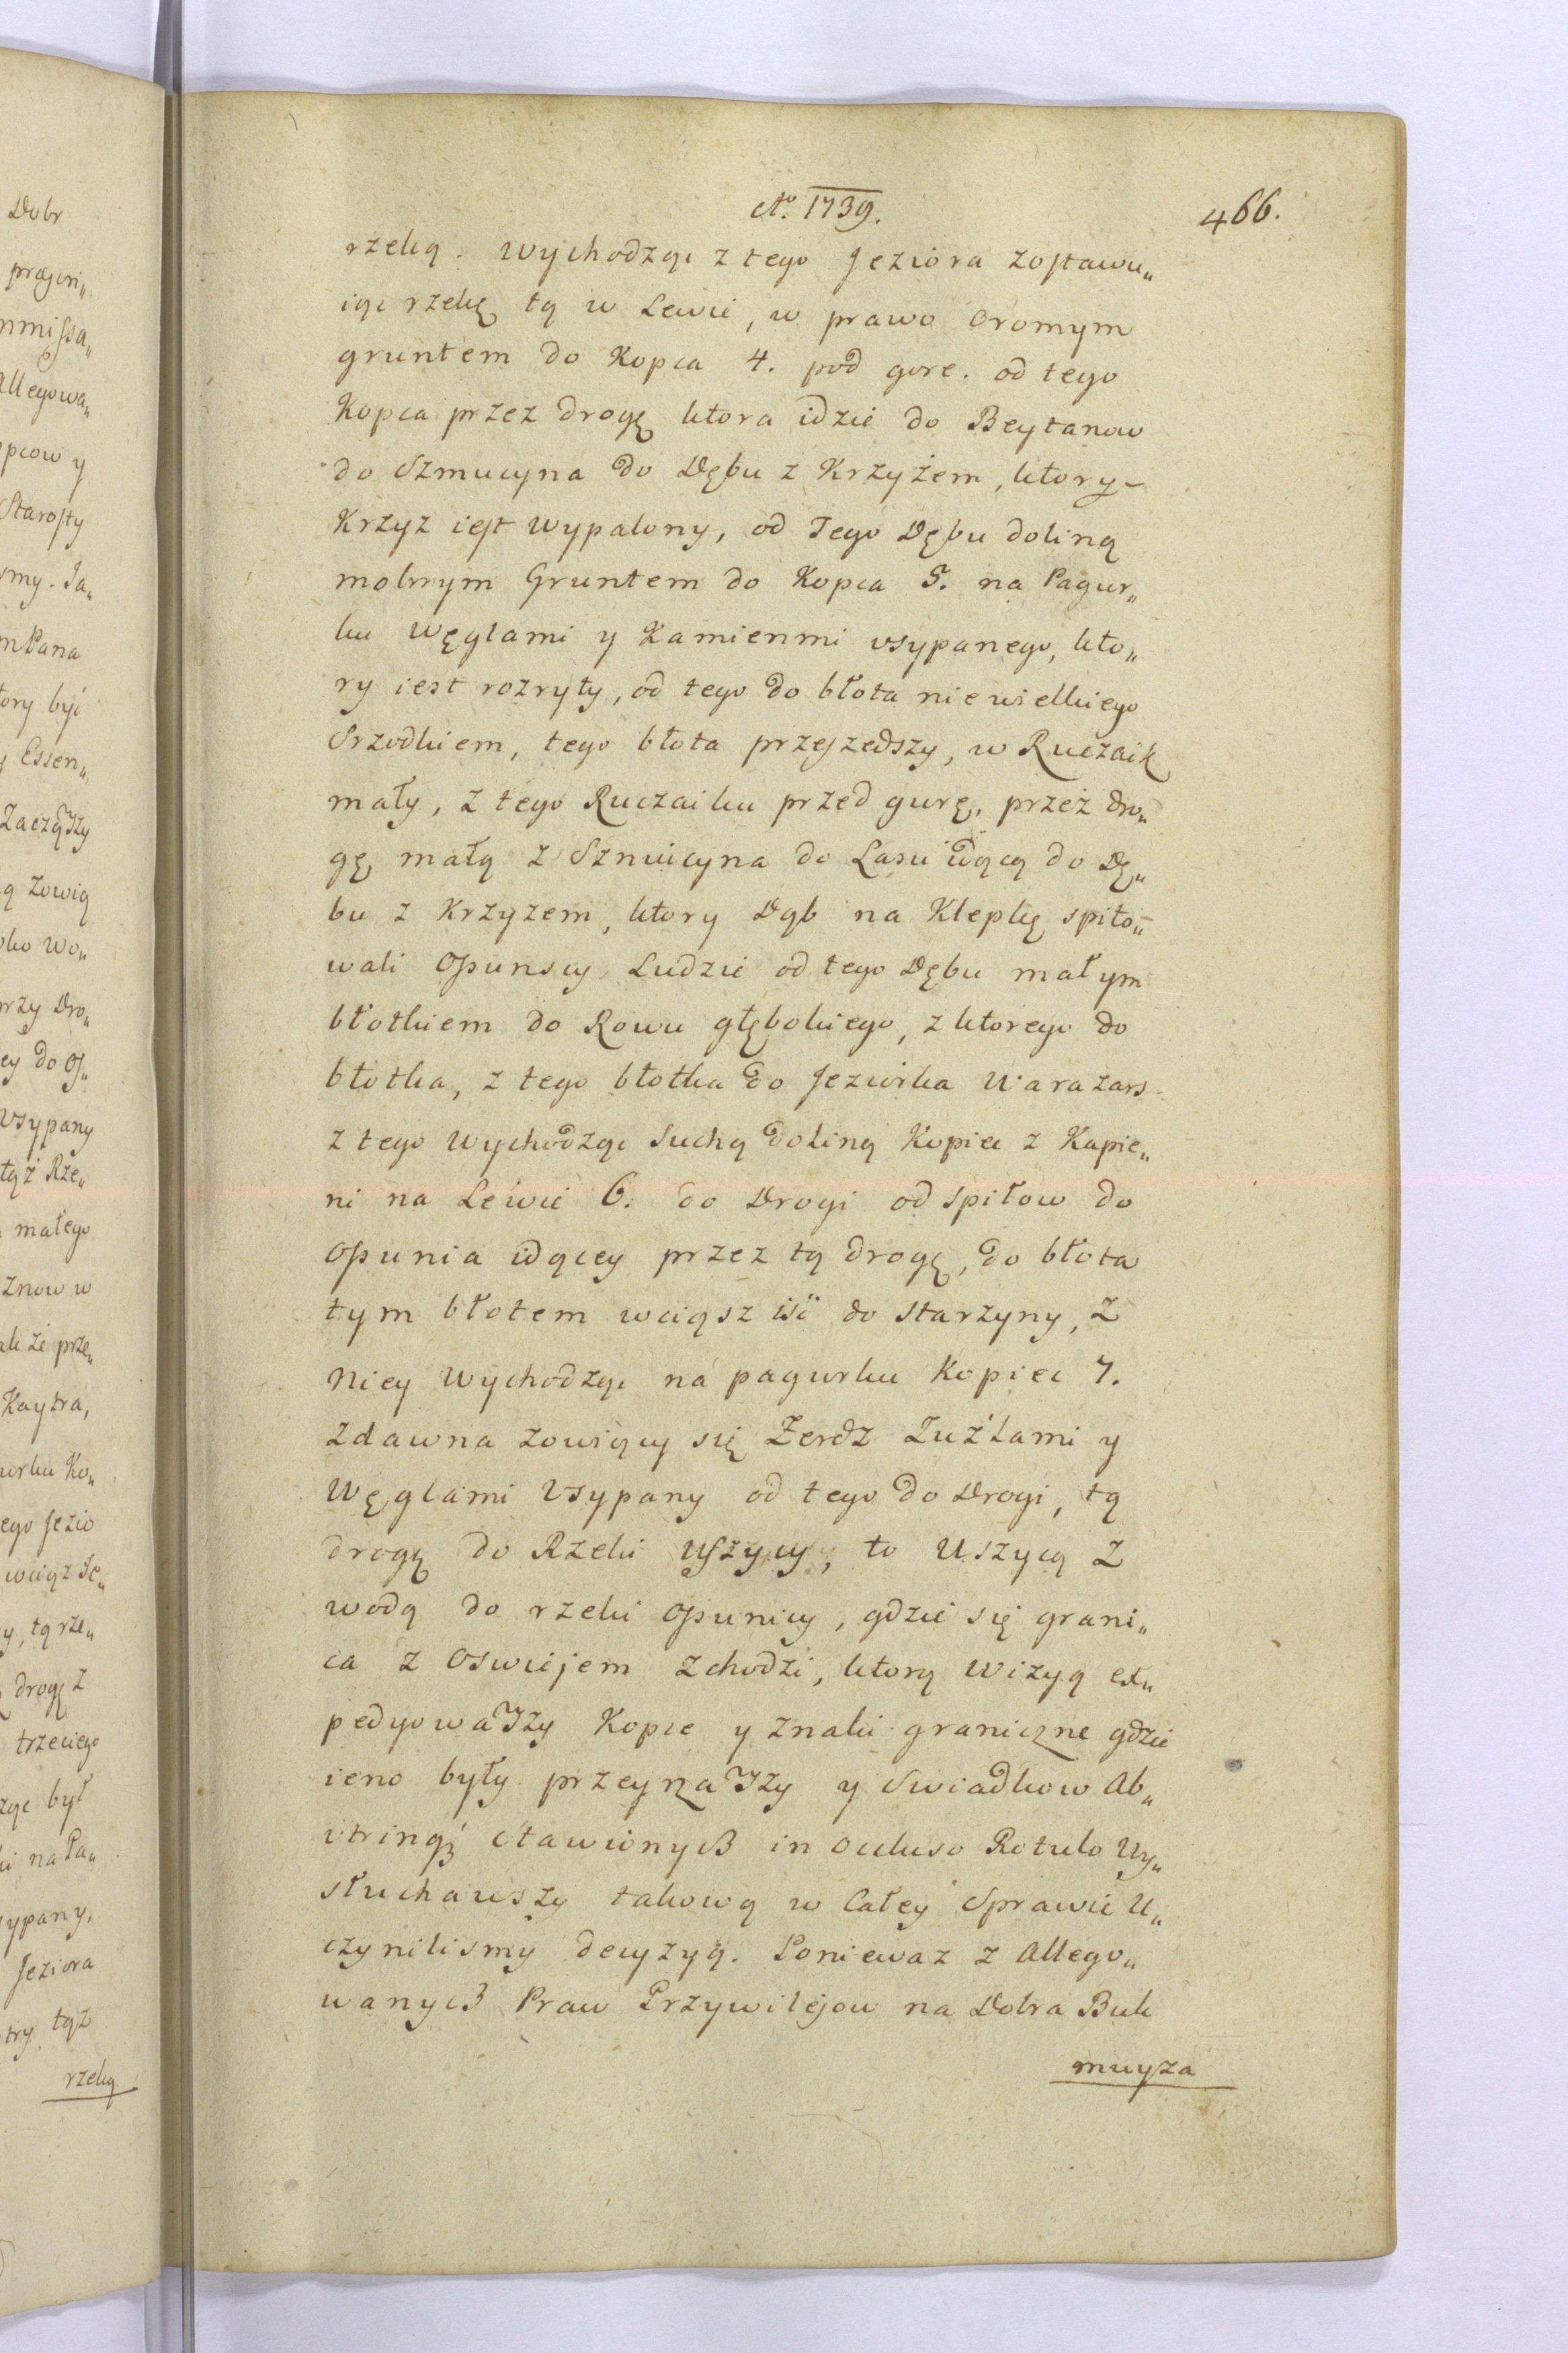 Aº. 1739.
466.
rzeką. Wychodząc z tego Jeziora zostawu„
iąc rzekę tą w Lewie, w prawo oromym
gruntem do Kopca 4. pod gore. od tego
Kopca przez drogę ktora idzie do Beytanow
do Szmucyna do Dębu z Krzyżem, ktory
Krzyz iest wypalony, od Tego Dębu doliną
mokrym Gruntem do Kopca 5. na Pagur„
ku Węglami y Kamienmi vsypanego, kto„
ry iest rozryty, od tego do błota niewielkiego
Srzodkiem, tego błota przeszedszy, w Ruczaik
mały, z tego Ruczaiku przed gurę, przez dro„
gę małą z Szmucyna do Lasu idącą do Dę„
bu z Krzyzem, ktory Dąb na Klepkę spiło„
wali Opunscy Ludzie od tego Dębu małym
błotkiem do Rowu głębokiego, z ktorego do
błotka, z tego błotka do Jeziorka Warazars
z tego Wychodząc Suchą doliną Kopiec z Kapie„
ni na Lewie 6. do Drogi od Spiłow do
Opunia idącey przez tą drogę, do błota
tym błotem wciąsz iść do Starzyny, z
Niey Wychodząc na pagurku Kopiec 7.
Zdawna zowiący się Żerdz Zuźlami y
Węglami Vsypany od tego do Drogi, tą
drogą do Rzeki Uszycy, to Uszycą z
wodą do rzeki Opunicy, gdzie się grani„
ca z Oswiejem zchodzi, ktorą Wizyą ex„
pedyowaszy Kopce y Znaki graniczne gdzie
ieno były przeznaszy y Swiadkow Ab„
utrinque Stawionych in occluso Rotulo Wy„
słuchawszy takową w Całey Sprawie U„
czynilismy decyzyą. Poniewaz z Allego„
wanych Praw Przywilejow na Dobra Buk
muyza
Dobr
Allegowa„
pcow y
Starosty
my. Ja„
m Pana
ory być
y Essen„
ą Zowią
ko wo„
rzy Dro„
ey do O„
Vsypany
tąż Rze„
małego
Znow w
że prze„
Kaytra,
urku Ko„
ego Jezio
wciąż Je„
y, tą rze„
drogę z
trzeciego
ząc był
ki na Pa„
sypany,
Jeziora
try, tąż
rzeką